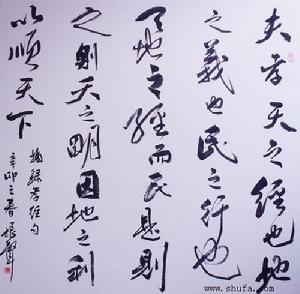 夫孝天之經也地
之義也民之行也
天地之經而民是則
之則天之明因地之利
以順天下
摘録孝經句
辛卯之春振聲
www.shufa.com